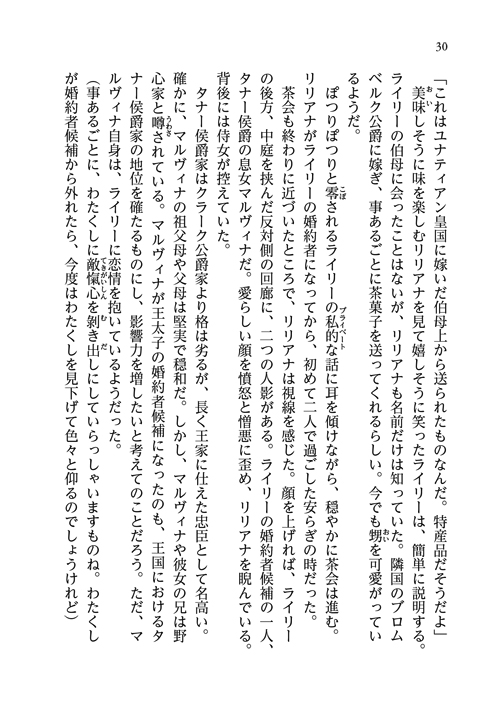 30
「これはユナティアン皇国に嫁いだ伯母上から送られたものなんだ。特産品だそうだよ」
美味しそうに味を楽しむリリアナを見て嬉しそうに笑ったライリーは、簡単に説明する。
ライリーの伯母に会ったことはないが、リリアナも名前だけは知っていた。隣国のブロム
ベルク公爵に嫁ぎ、事あるごとに茶菓子を送ってくれるらしい。今でも甥を可愛がってい
るようだ。
ぽつりぽつりと零されるライリーの私的な話に耳を傾けながら、穏やかに茶会は進む。
リリアナがライリーの婚約者になってから、初めて二人で過ごした安らぎの時だった。
茶会も終わりに近づいたところで、リリアナは視線を感じた。顔を上げれば、ライリー
の後方、中庭を挟んだ反対側の回廊に、二つの人影がある。ライリーの婚約者候補の一人、
タナー侯爵の息女マルヴィナだ。愛らしい顔を憤怒と憎悪に歪め、リリアナを睨んでいる。
背後には侍女が控えていた。
タナー侯爵家はクラーク公爵家より格は劣るが、長く王家に仕えた忠臣として名高い。
確かに、マルヴィナの祖父母や父母は堅実で穏和だ。しかし、マルヴィナや彼女の兄は野
心家と噂されている。マルヴィナが王太子の婚約者候補になったのも、王国におけるタ
ナー侯爵家の地位を確たるものにし、影響力を増したいと考えてのことだろう。ただ、マ
ルヴィナ自身は、ライリーに恋情を抱いているようだった。
（事あるごとに、わたくしに敵愾心を剝き出しにしていらっしゃいますものね。わたくし
が婚約者候補から外れたら、今度はわたくしを見下げて色々と仰るのでしょうけれど）